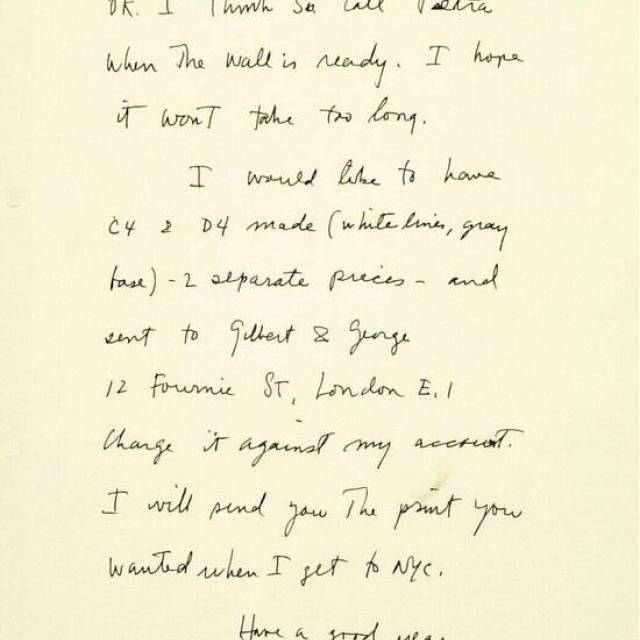 OK. I Think so. Call
when The wall is ready. I hope
it won't take too long.
I would like to have
C4 & D4 made (white lines, gray
base) - 2 separate pieces - and
sent to Gilbert & George
12 Fournie ST, London E.1
Charge it against my account.
I will send you The print you
wanted when I get to NYC.
Have a good year